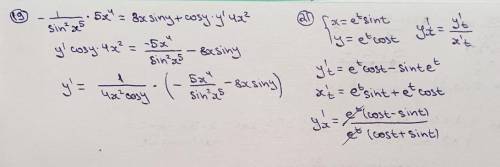 19) -1/sin²x⁵ · 5x⁴ = 8xsiny + cosy · y' 4x²
y' cosy · 4x² = -5x⁴/sin²x⁵ - 8xsiny
y' = 1/4x²cosy · (-5x⁴/sin²x⁵ - 8xsiny)
21) { x = eᵗsint
y = eᵗcost
y'ₓ = y'ₜ/x'ₜ
y'ₜ = eᵗcost - sint eᵗ
x'ₜ = eᵗsint + eᵗcost
y'ₓ = eᵗ(cost - sint)/eᵗ(cost + sint)